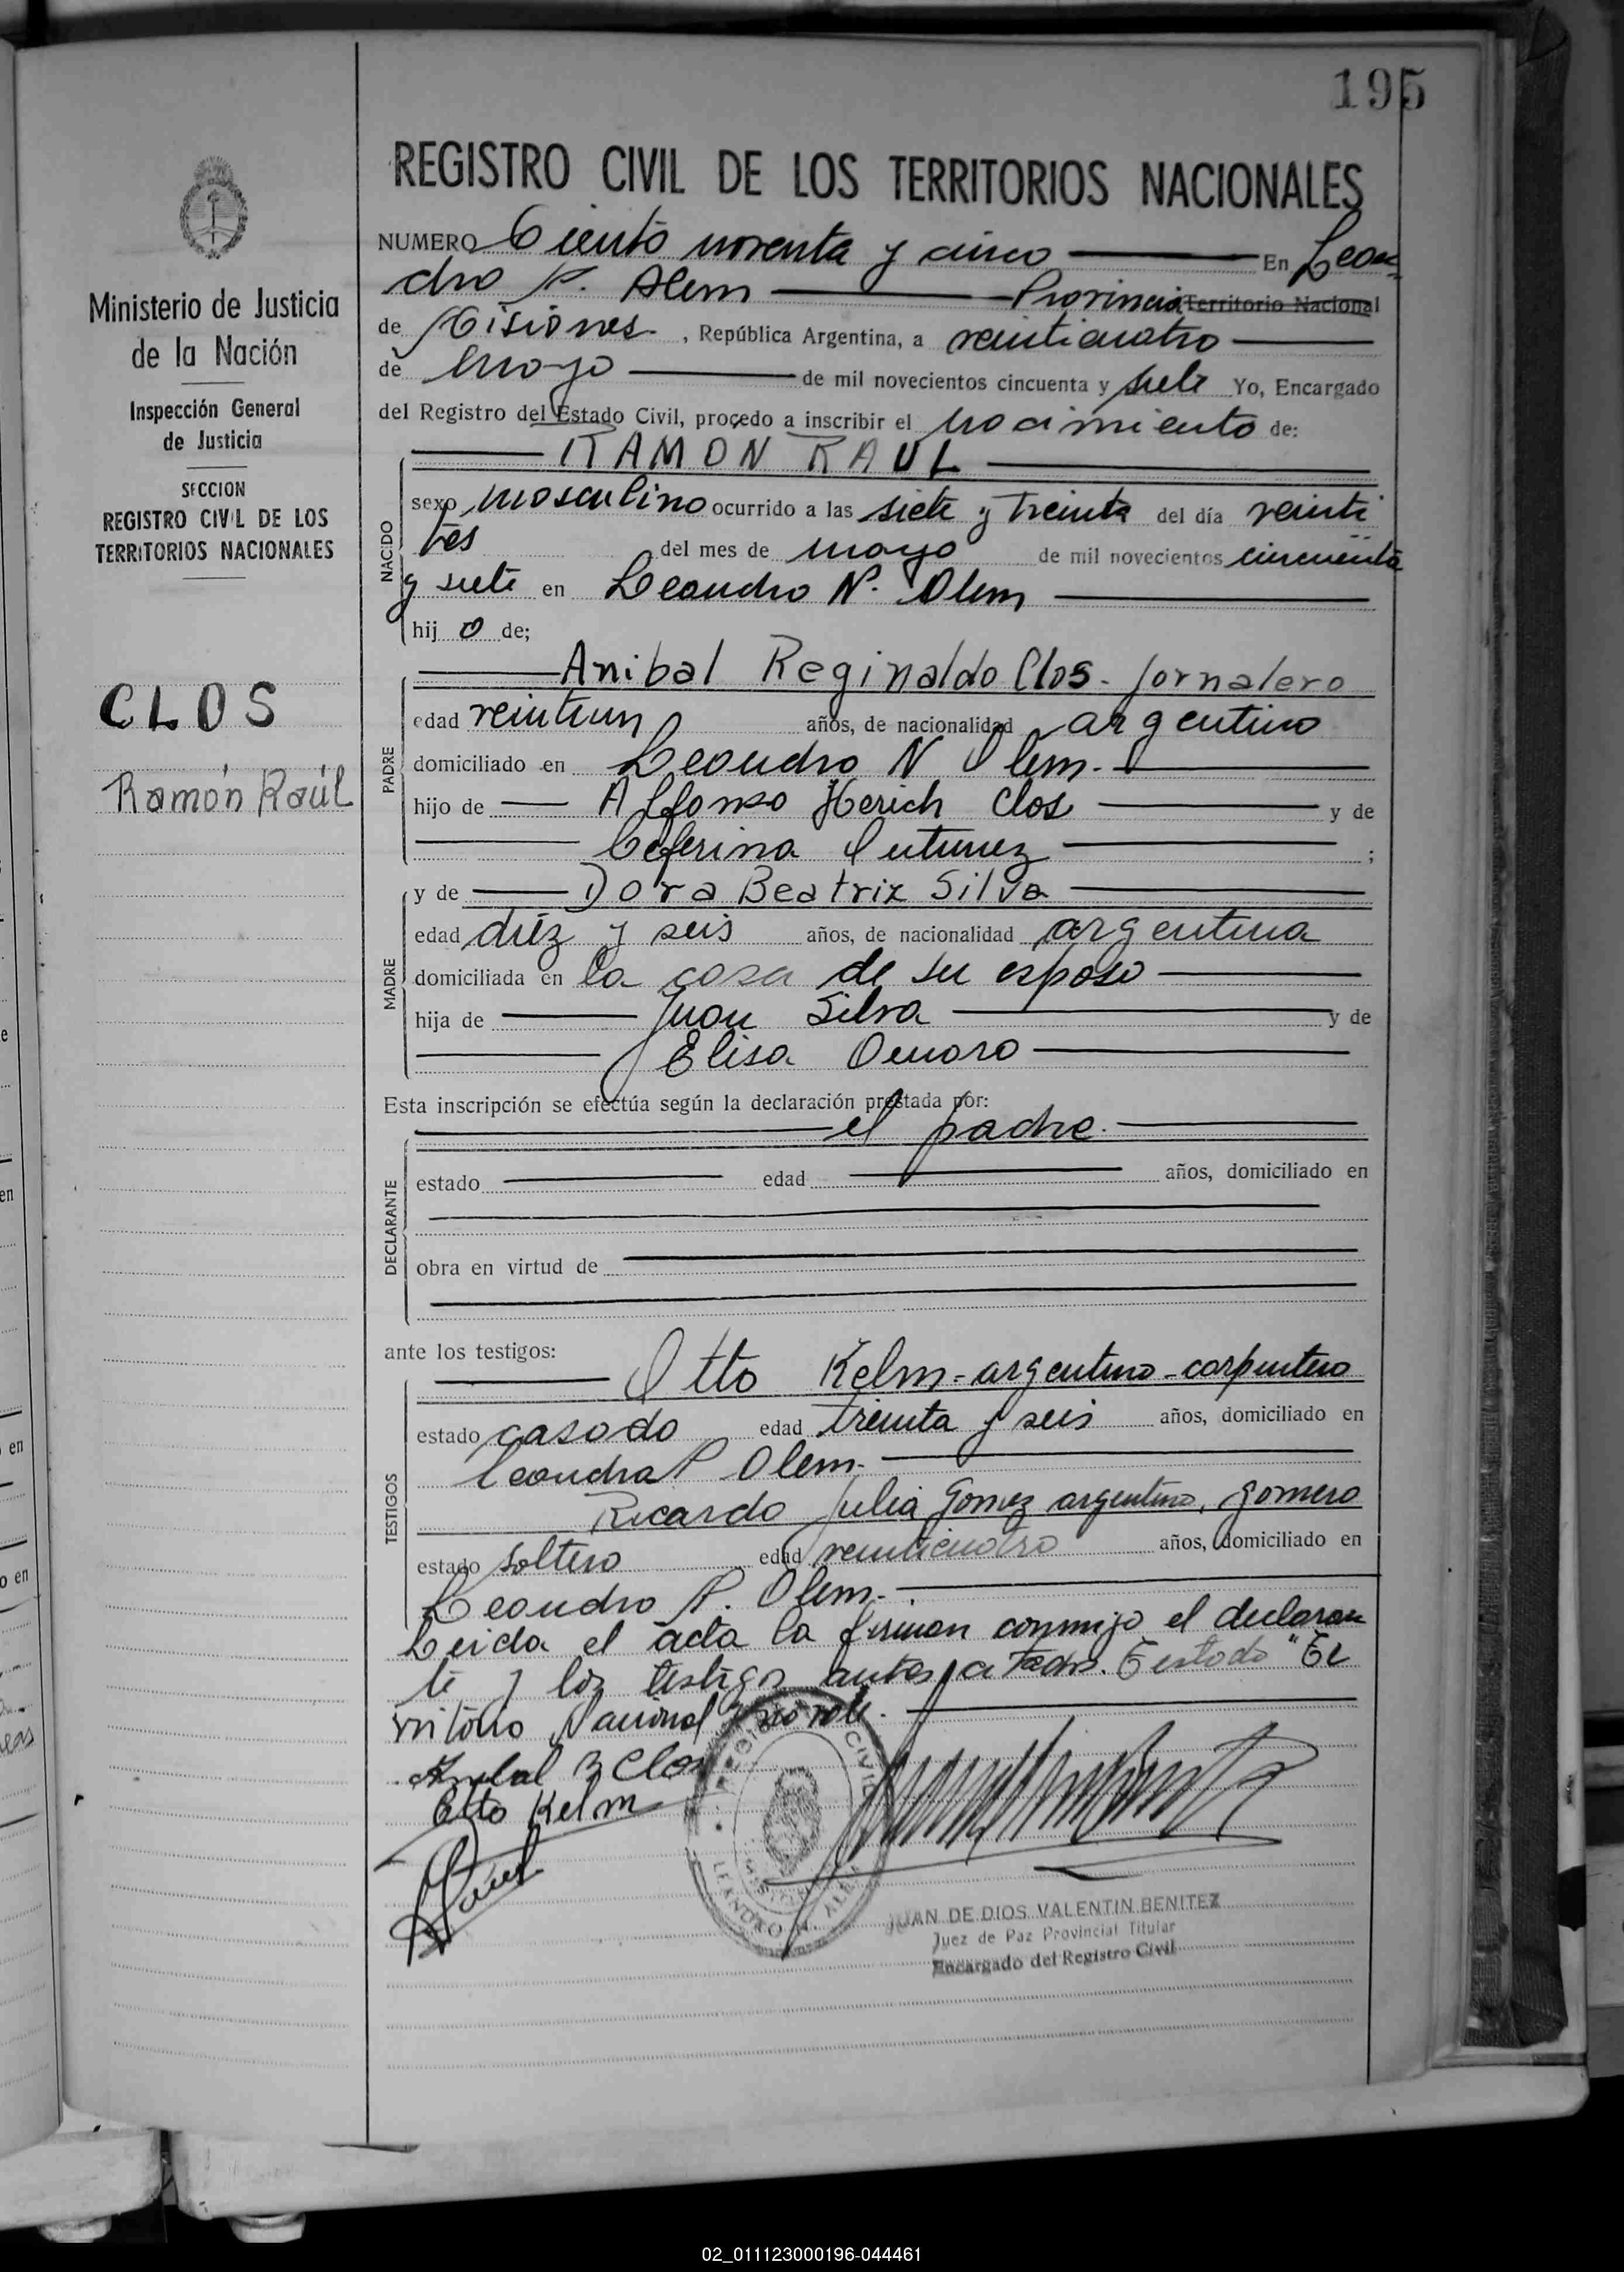 195
REGISTRO CIVIL DE LOS TERRITORIOS NACIONALES
NUMERO Ciento noventa y cinco En Lean-
dro N. Alem Provincia Territorio Nacional
de Misiones , República Argentina, a veinticuatro
de mayo de mil novecientos cincuenta y siete Yo, Encargado
del Registro del Estado Civil, procedo a inscribir el nacimiento de:
RAMON RAUL
NACIDO
sexo masculino ocurrido a las siete y treinta del día veinti
tres del mes de mayo de mil novecientos cincuenta
y siete en Leandro N. Alem
hij o de;
Anibal Reginaldo Clos - Jornalero
PADRE
edad veintiun años, de nacionalidad argentino
domiciliado en Leandro N Alem.
hijo de Alfonso Herich Clos y de
Ceferina ;
y de Dora Beatriz Silva
MADRE
edad diez y seis años, de nacionalidad argentina
domiciliada en la casa de su esposo
hija de Juan Silva y de
Elisa
Esta inscripción se efectúa según la declaración prestada por:
el padre.
DECLARANTE
estado edad años, domiciliado en
obra en virtud de
ante los testigos:
Otto Kelm - argentino - carpintero
TESTIGOS
estado casado edad treinta y seis años, domiciliado en
Leandro N Alem.
Ricardo Julia Gomez argentino, gomero
estado soltero edad veinticuatro años, domiciliado en
Leandro N. Alem.
Leida el acta la firman conmigo el declaran
te y los testigos antes citados. Testado "Te
rritorio Nacional" no vale.
Anibal R Clos
Otto Kelm
REGISTRO CIVIL
MISIONES
LEANDRO N. ALEM
JUAN DE DIOS VALENTIN BENITEZ
Juez de Paz Provincial Titular
Encargado del Registro Civil
Ministerio de Justicia
de la Nación
Inspección General
de Justicia
SECCION
REGISTRO CIVIL DE LOS
TERRITORIOS NACIONALES
CLOS
Ramón Raúl
e
en
en
o en
02_011123000196-044461